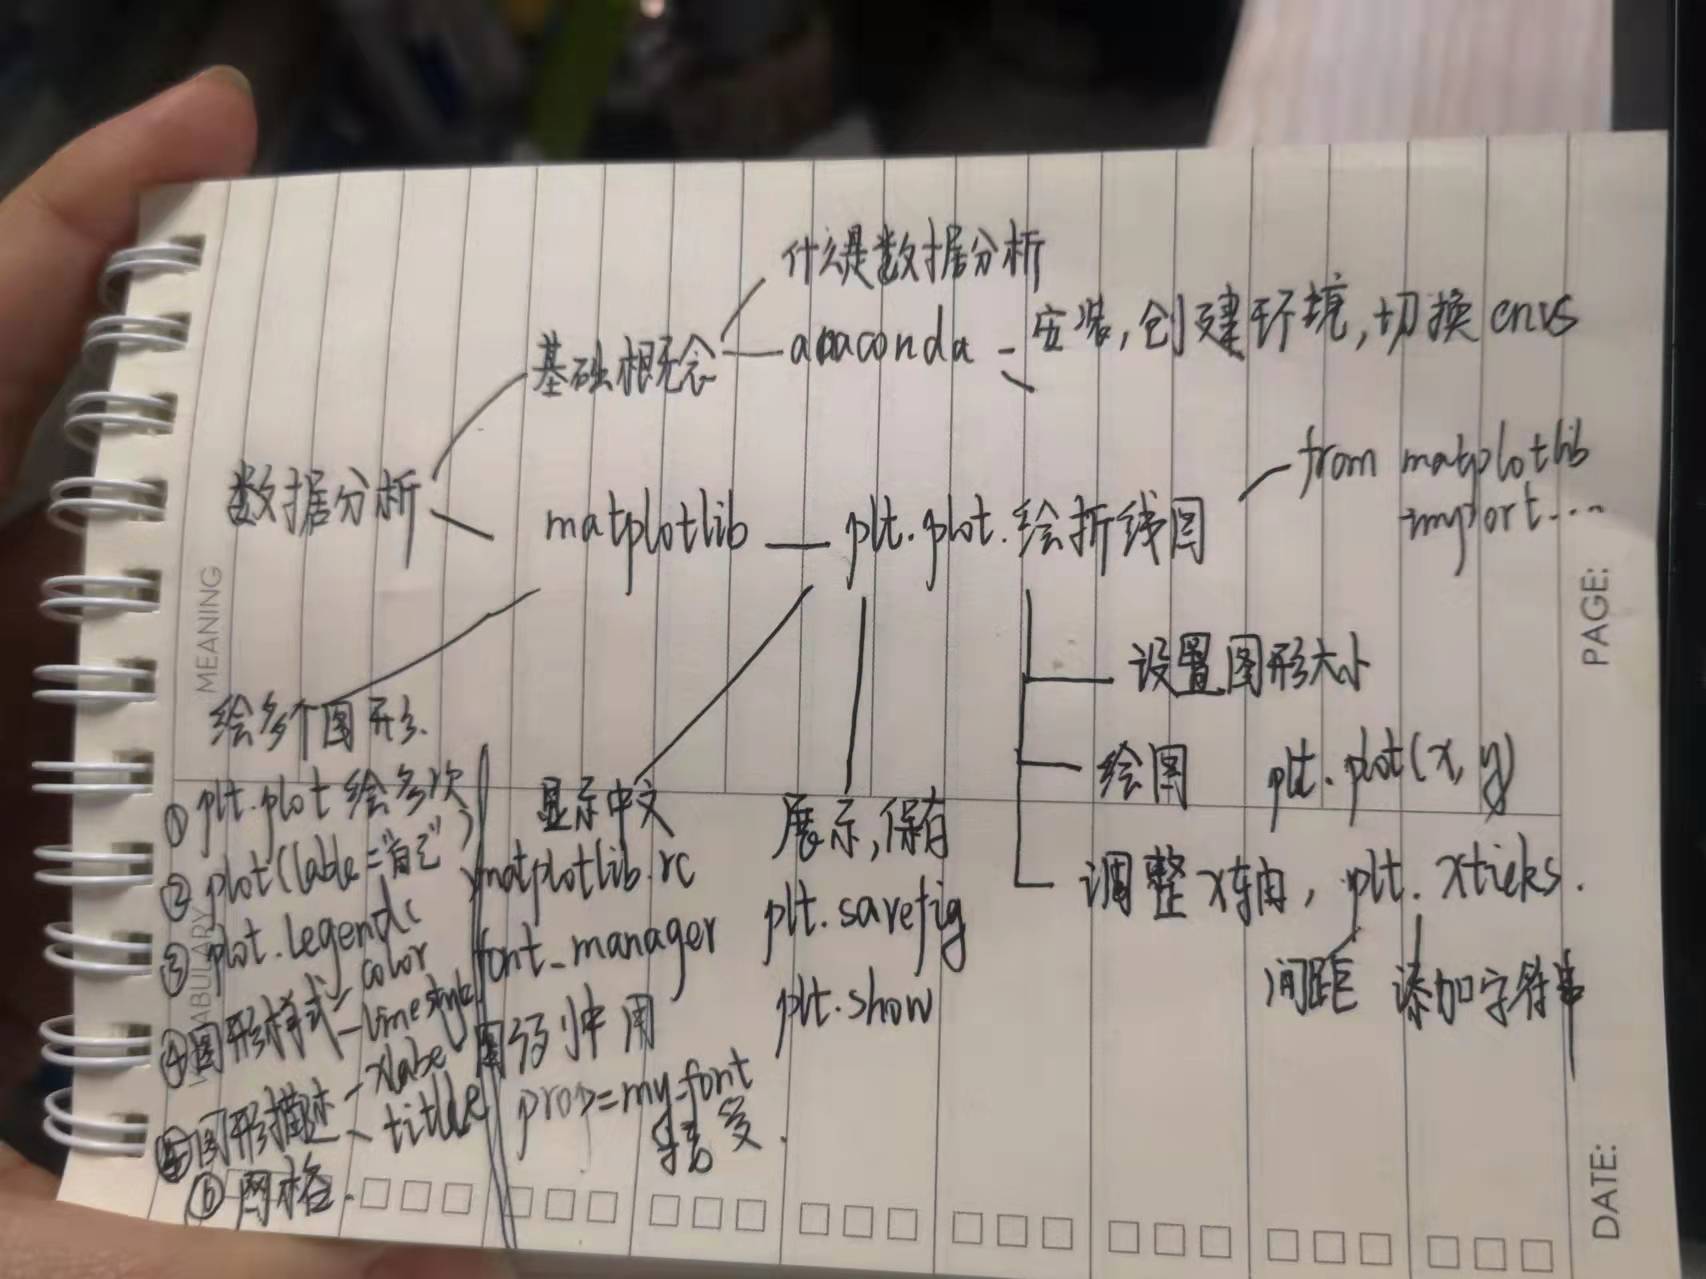 什么是数据分析
基础概念
anaconda - 安装,创建环境,切换envs
数据分析
matplotlib
plt.plot.绘折线图
from matplotlib
import...
设置图形大小
绘图 plt.plot(x,y)
调整x轴, plt.xticks.
间距 添加字符串
绘多个图形.
①plt.plot绘多次
②plot(lable="自己")
③plot.legend(
④图形样式 color
linestyle
⑤图形描述 xlabel
title
⑥网格.
显示中文
matplotlib.rc
font_manager
图例中用
prop=my_font
接受.
展示,保存
plt.savefig
plt.show
MEANING
VOCABULARY
PAGE:
DATE: